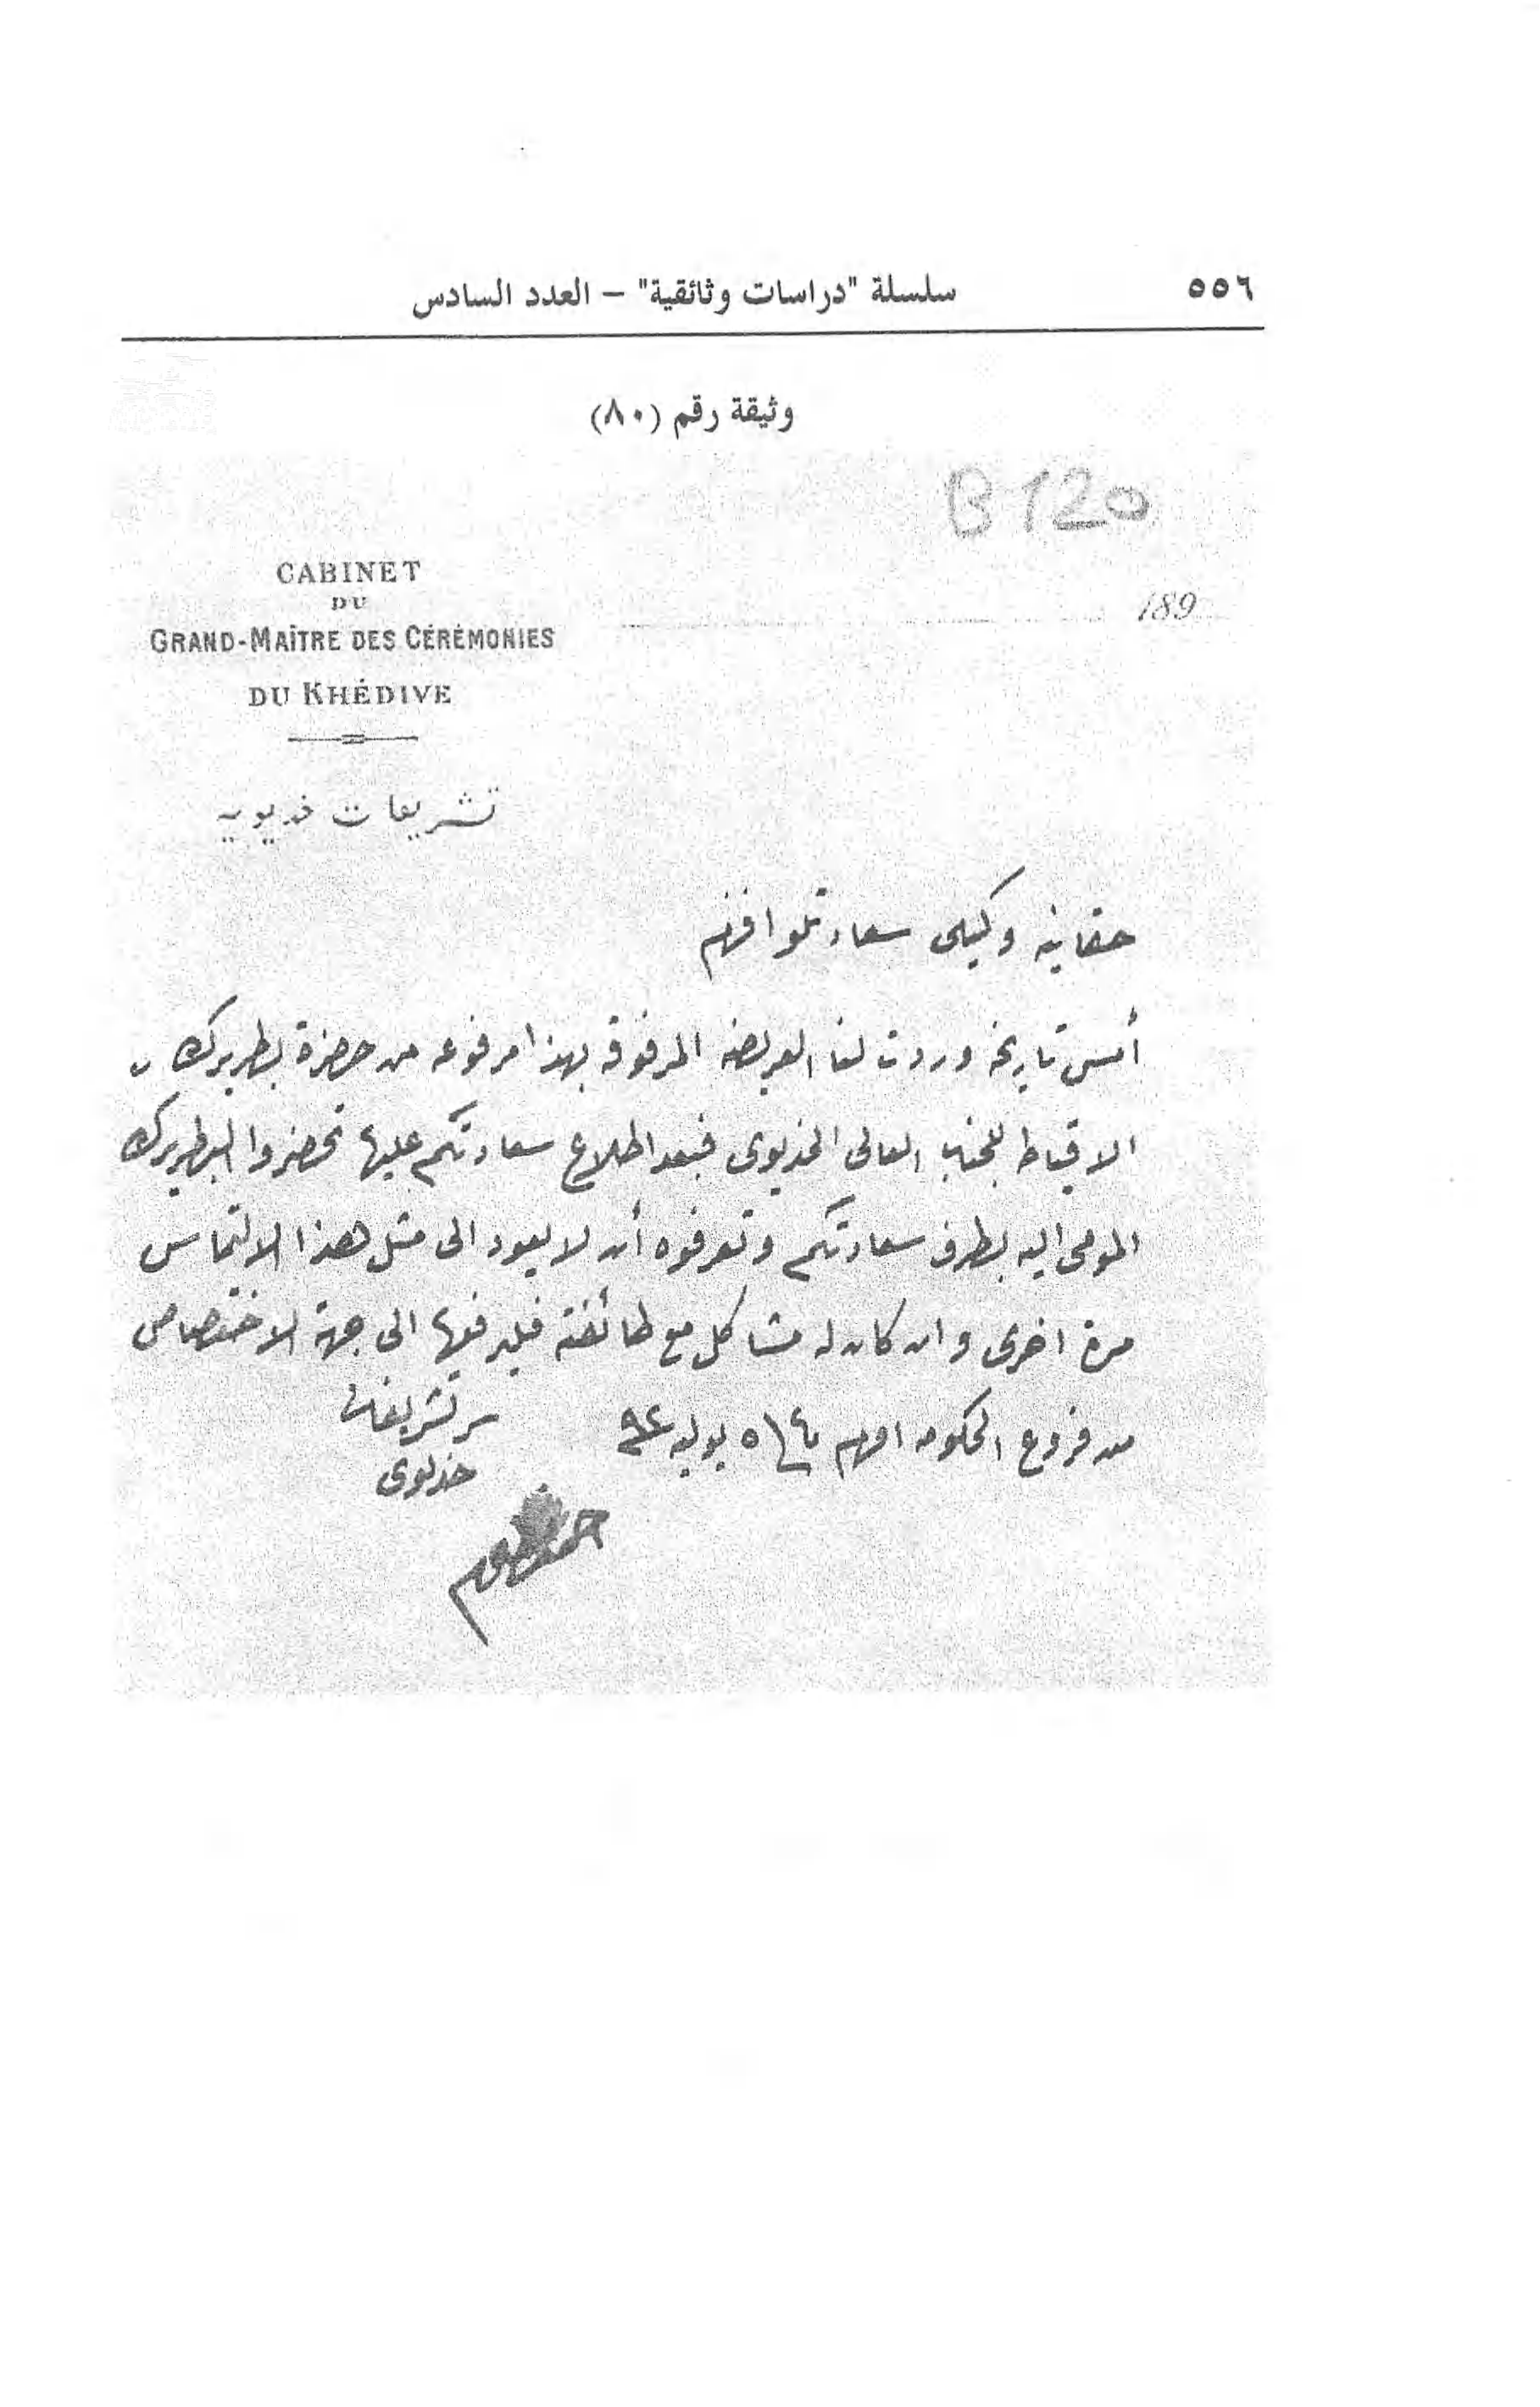 ٥٥٦
سلسلة "دراسات وثائقية" – العدد السادس
وثيقة رقم (٨٠)
B 120
CABINET
DU
GRAND-MAÎTRE DES CÉRÉMONIES
DU KHÉDIVE
189
تشريفات خديويه
حقانيه وكيلى سعادتلو افندم
أمس تاريخه وردت لنا العريضه المرفوقه بهذا مرفوعه من حضرة بطريرك
الاقباط للجناب العالى الخديوى فبعد اطلاع سعادتكم عليها تحضروا البطريرك
المومى اليه بطرف سعادتكم وتعرفوه أن لا يعود الى مثل هذا الالتماس
مرة اخرى وان كان له مشاكل مع طائفته فليرفعها الى جهة الاختصاص
من فروع الحكومه افندم ٥ يوليه
سر تشريفات
خديوى